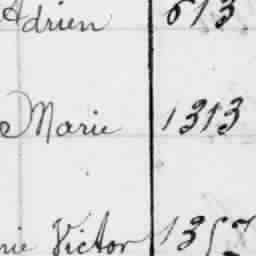 Adrien 613
Marie 1313
Victor